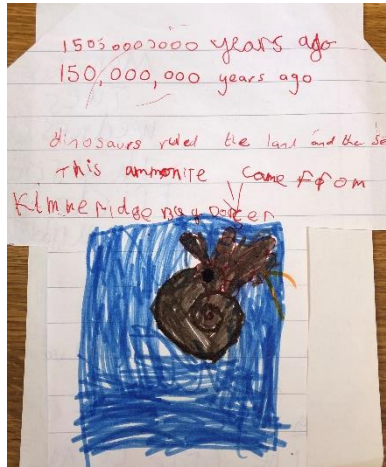 150500000000 years ago
150,000,000 years ago
dinosaurs ruled the land and the Se
This ammonite came from
Kimmeridge Bay